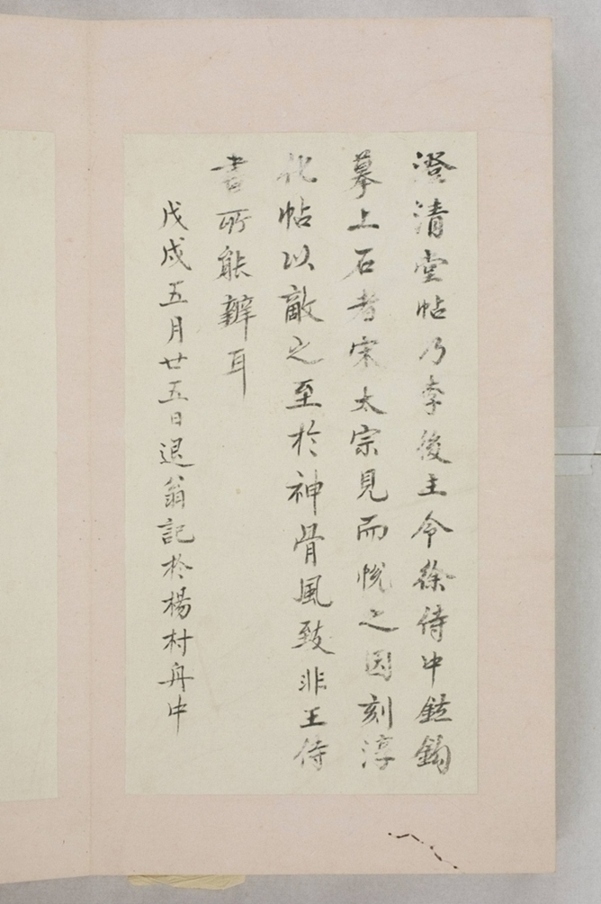 澄清堂帖乃李後主令徐侍中鉉鉤
摹上石者宋太宗見而悅之因刻淳
化帖以敵之至於神骨風致非王侍
書所能辨耳
戊戌五月廿五日退翁記於楊村舟中